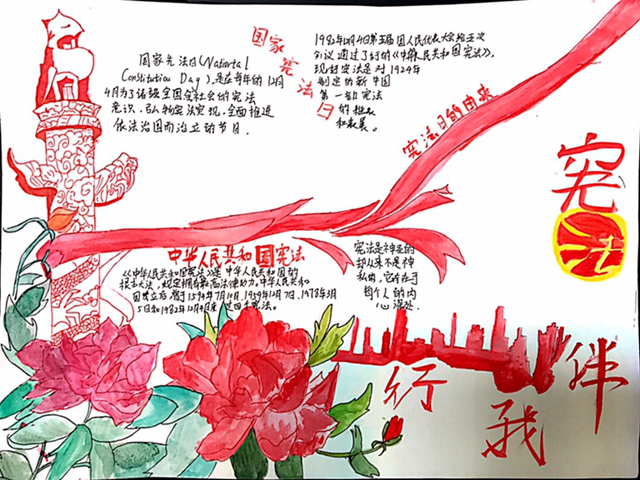 国家宪法日(National
Constitution Day),是在每年的12月
4月为了增强全国全社会的宪法
意识、弘扬宪法实现,全面推进
依法治国而设立的节日.
国家宪法日
1982年12月4日第五届国人民代表大会第五次
议通过了《中华人民共和国宪法》。
现行宪法是对
制定的新中国
第一部宪法
的
和发展。
宪法日的由来
中华人民共和国宪法
《中华人民共和国宪法》是中华人民共和国的
根本大法,规定拥有最高法律效力。中华人民共和
国成立后,曾于1594年7月20日、1959年12月7日、1978年3月
5日和1982年12月4日
宪法是神圣的
护从来不是神
私的,它存在于
每个人的内
心深处.
宪法
伴
我
行